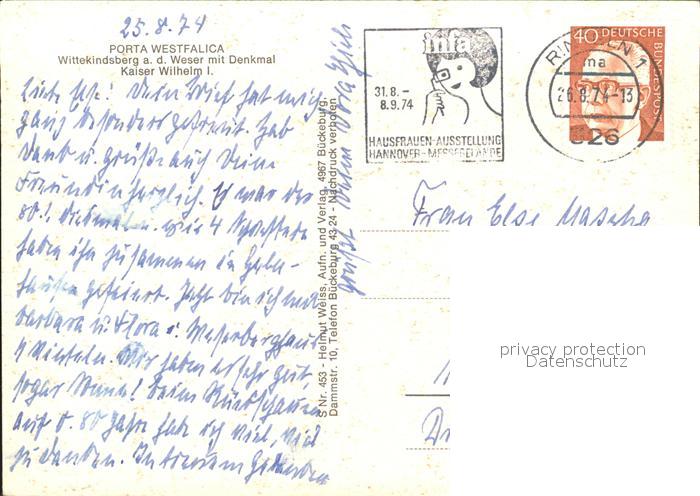 25.8.74
PORTA WESTFALICA
Wittekindsberg a. d. Weser mit Denkmal
Kaiser Wilhelm I.
Liebe Else! Dein Brief hat mich
ganz besonders gefreut. Hab
Dank u. grüße auch Deine
Freundin herzlich. Es war der
80.! diesmal. wir 4 Schwestern
haben ihn zusammen in Geln-
hausen gefeiert. Jetzt bin ich mit
Barbara u. Flora i. Weserbergland
haben es sehr gut,
sogar Sonne! Beim Rückschauen
auf d. 80 Jahre habe ich viel, viel
zu danken. In treuem Gedenken
grüßt Deine Dora
S Nr. 453 - Helmut Weiss, Aufn. und Verlag, 4967 Bückeburg,
Dammstr. 10, Telefon Bückeburg 43 24 - Nachdruck verboten
infa
31.8. –
8.9.74
HAUSFRAUEN-AUSSTELLUNG
HANNOVER-MESSEGELÄNDE
RINTELN 1
ma
26.8.74-15
326
40 DEUTSCHE
BUNDESPOST
Frau Else Mascha
privacy protection
Datenschutz